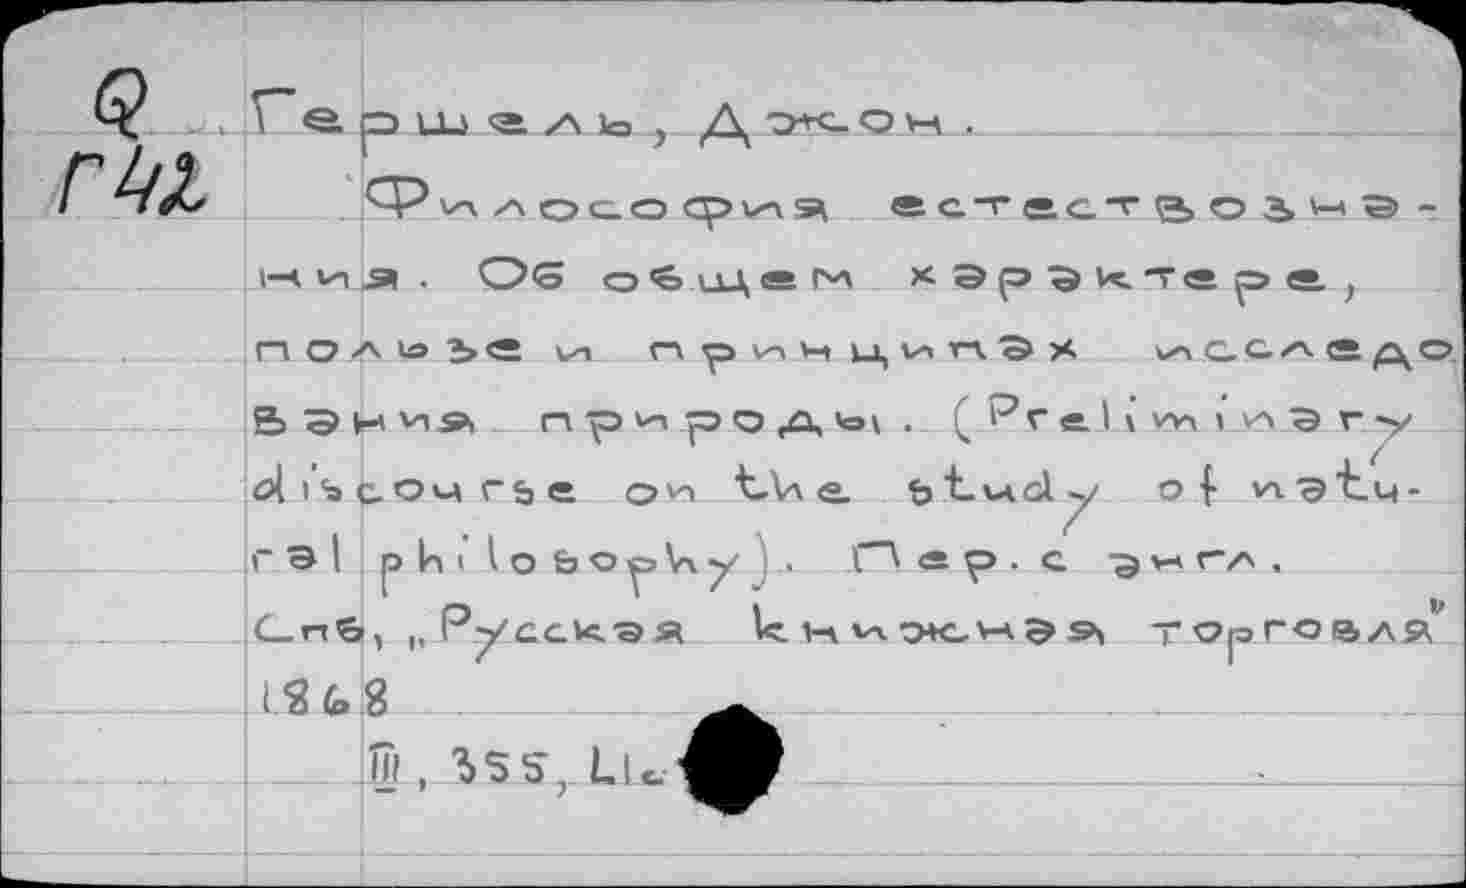 Q Гершель, Джон.
Г42 Философия естествозна-
ния. Об общем характере,
пользе и принципах исследо
вания природы. (Preliminary
discourse on the study of natu-
ral philosophy). Пер. с англ.
Спб, „Русская книжная торговля"
1868
III, 355, LIc.